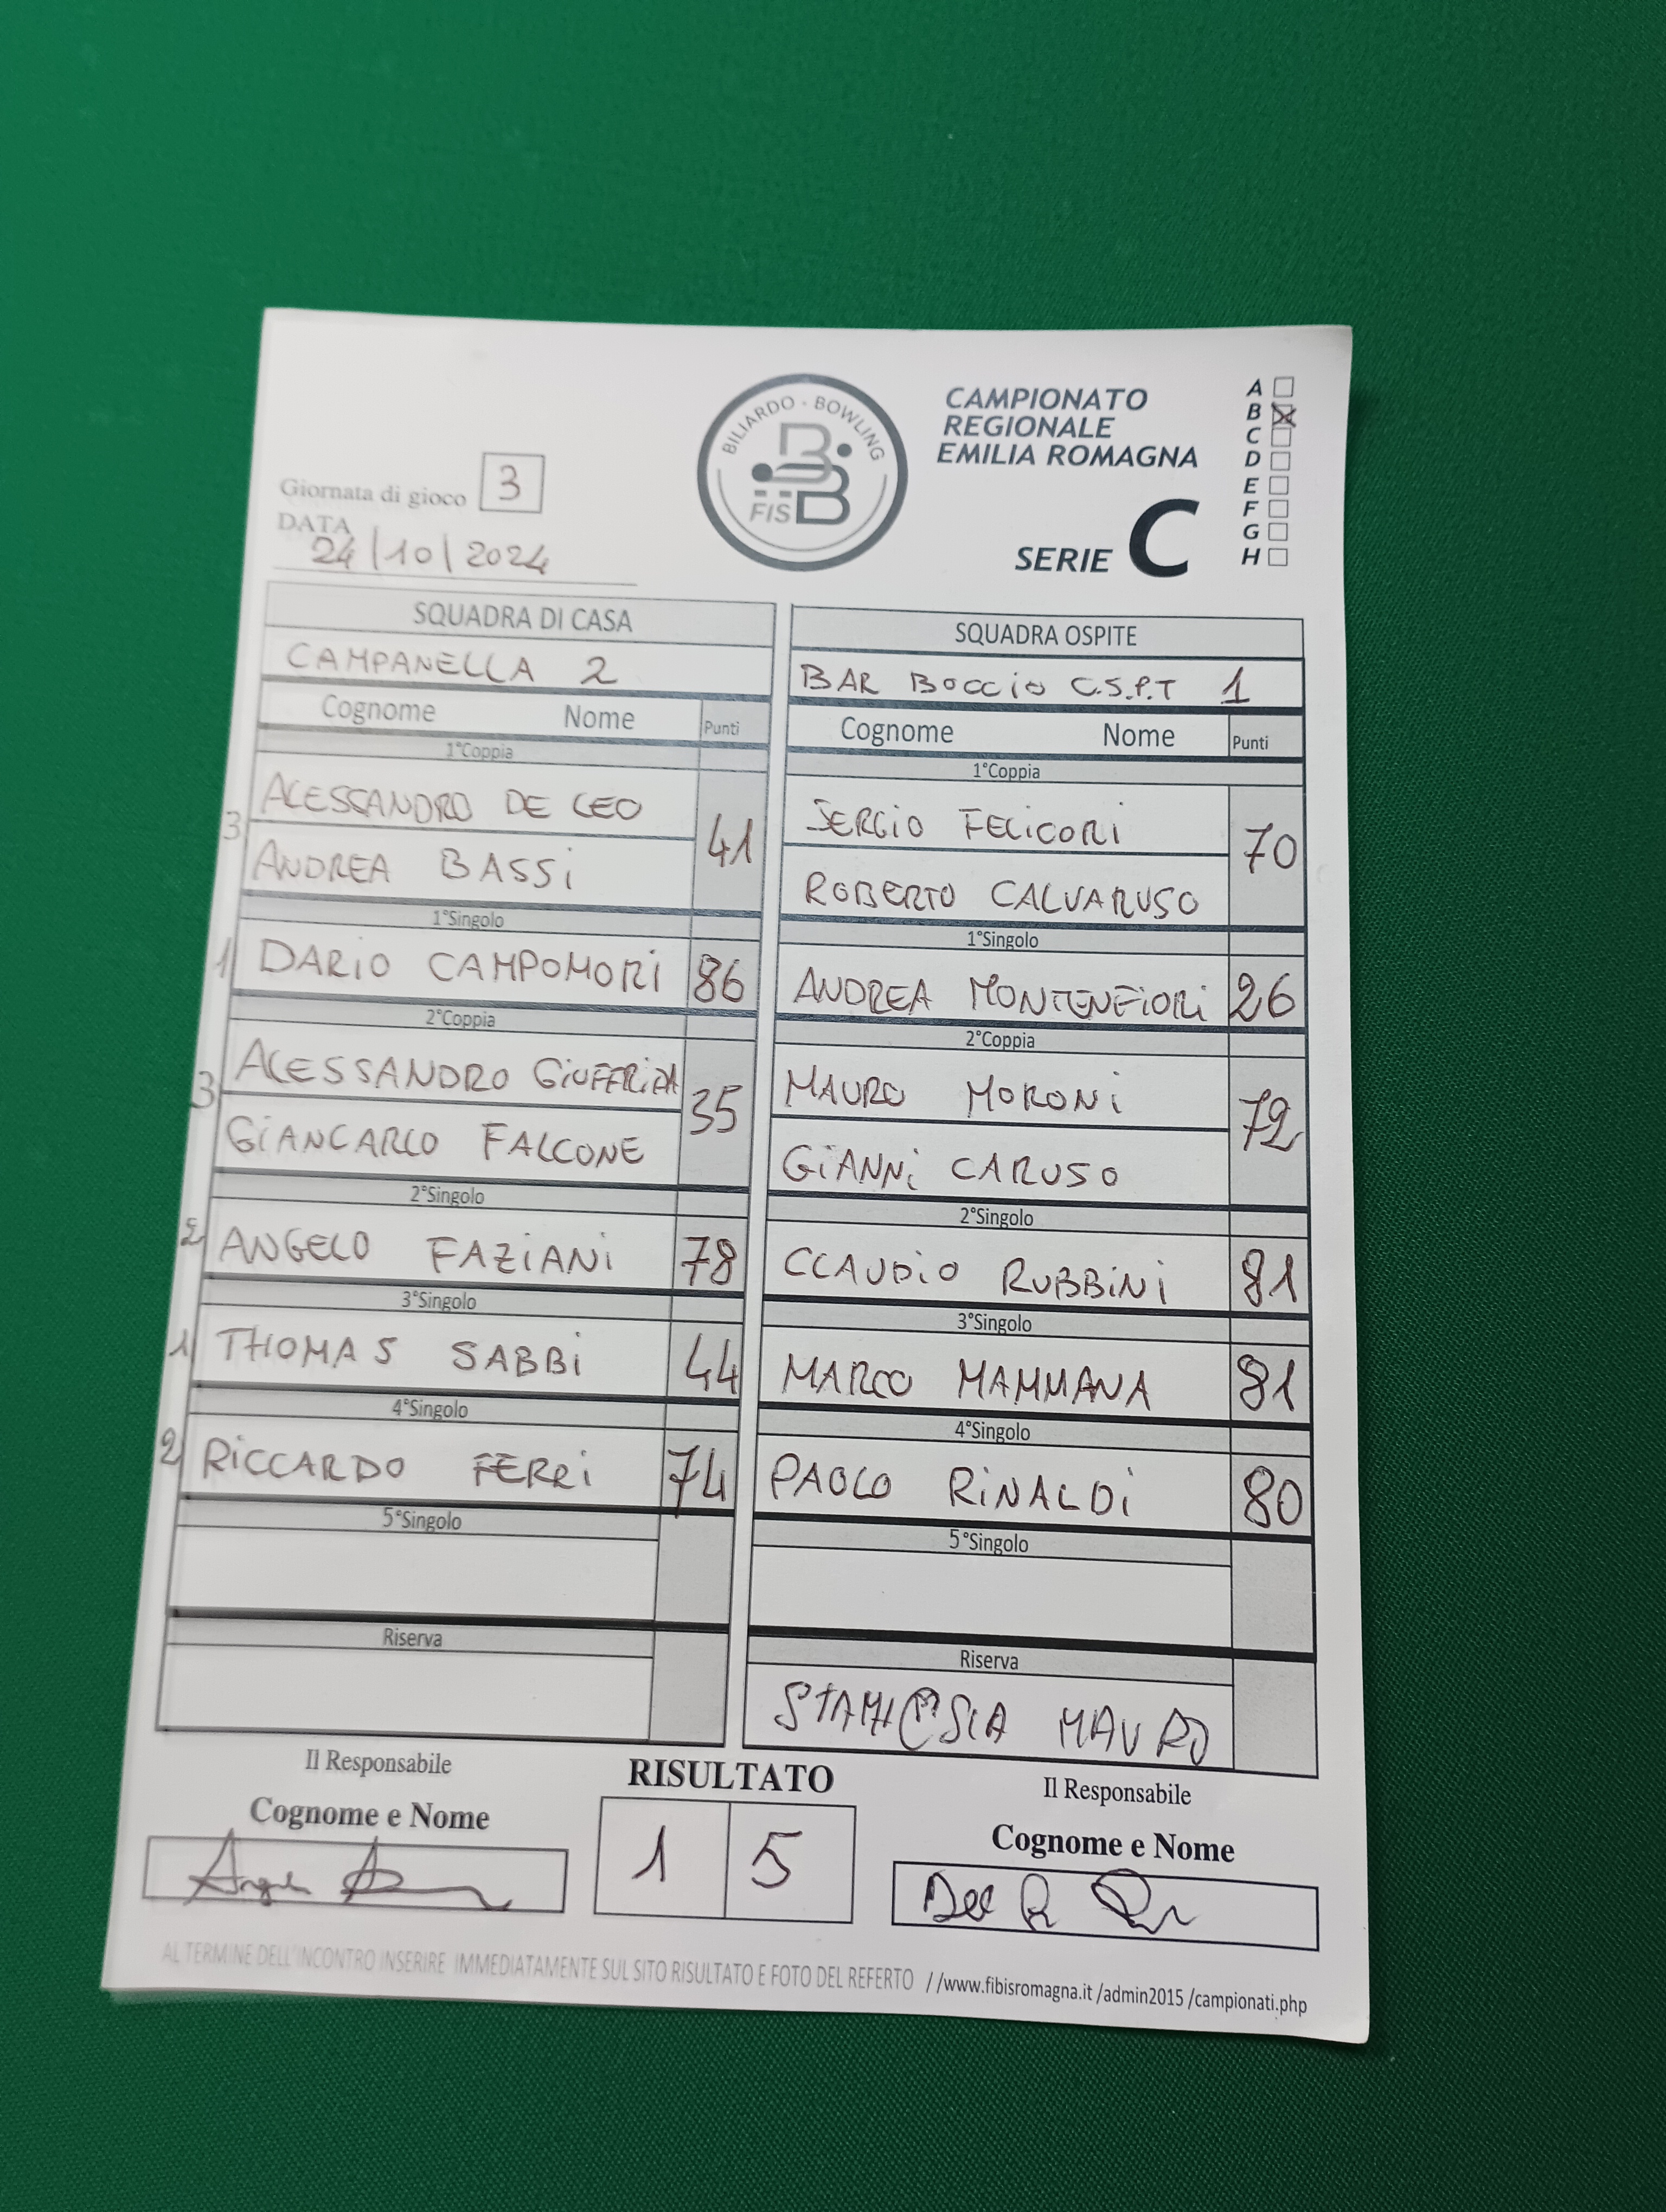 BILIARDO - BOWLING
FISBB
CAMPIONATO
REGIONALE
EMILIA ROMAGNA
SERIE C
A
B
C
D
E
F
G
H
Giornata di gioco 3
DATA
24/10/2024
SQUADRA DI CASA
CAMPANELLA 2
Cognome Nome Punti
1°Coppia
3 ALESSANDRO DE LEO
ANDREA BASSI
41
1°Singolo
1 DARIO CAMPOMORI 86
2°Coppia
3 ALESSANDRO GIUFFRIDA
GIANCARLO FALCONE
35
2°Singolo
2 ANGELO FAZIANI 78
3°Singolo
1 THOMAS SABBI 44
4°Singolo
2 RICCARDO FERRI 74
5°Singolo
Riserva
SQUADRA OSPITE
BAR BOCCIO C.S.P.T 1
Cognome Nome Punti
1°Coppia
SERGIO FELICORI
ROBERTO CALVARUSO
70
1°Singolo
ANDREA MONTENFIORI 26
2°Coppia
MAURO MORONI
GIANNI CARUSO
72
2°Singolo
CLAUDIO RUBBINI 81
3°Singolo
MARCO MAMMANA 81
4°Singolo
PAOLO RINALDI 80
5°Singolo
Riserva
MAURO
Il Responsabile
Cognome e Nome
RISULTATO
1 5
Il Responsabile
Cognome e Nome
AL TERMINE DELL'INCONTRO INSERIRE IMMEDIATAMENTE SUL SITO RISULTATO E FOTO DEL REFERTO //www.fibisromagna.it /admin2015 /campionati.php